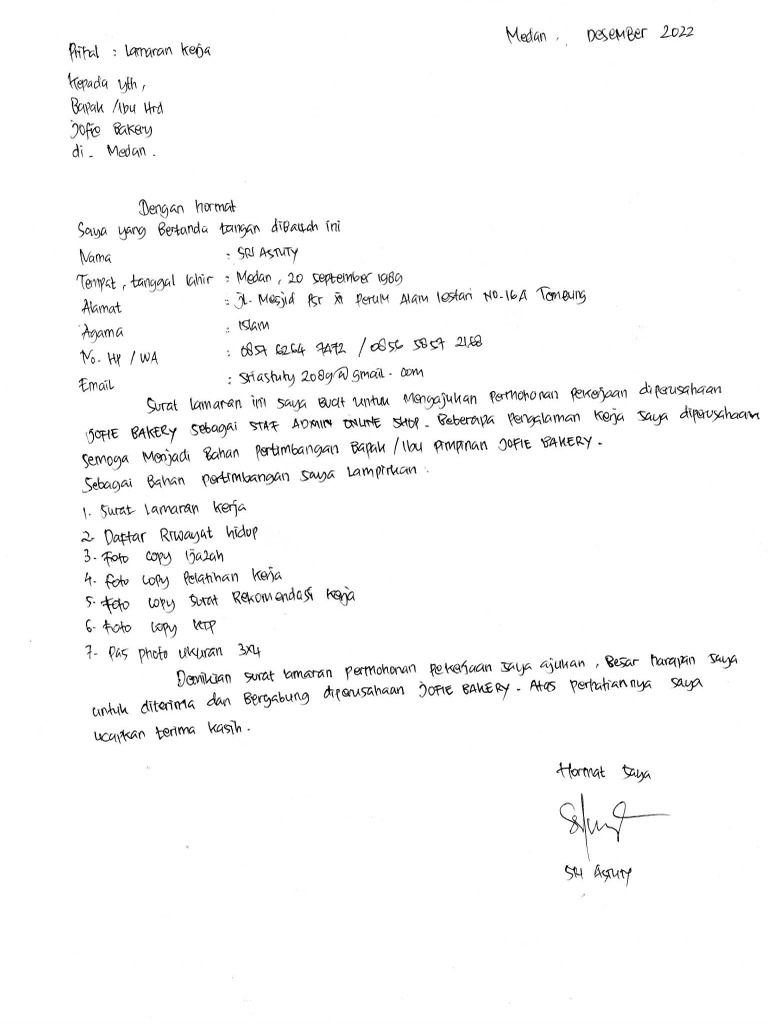 Medan, Desember 2022
Prihal : Lamaran kerja
Kepada yth,
Bapak /Ibu Hrd
Jofie Bakery
di - Medan.
Dengan hormat
Saya yang Bertanda tangan dibawah ini
Nama : SRI ASTUTY
Tempat, tanggal lahir : Medan, 20 September 1989
Alamat : Jl. Mesjid Psr XI Perum Alam Lestari NO-16A Tembung
Agama : Islam
No. HP / WA : 0857 6264 7472 / 0856 5857 2158
Email : sriastuty2089@gmail.com
Surat lamaran ini saya buat untuk Mengajukan Permohonan Pekerjaan diperusahaan
JOFIE BAKERY sebagai STAF ADMIN ONLINE SHOP. Beberapa Pengalaman Kerja saya diperusahaan
semoga Menjadi Bahan Pertimbangan Bapak /Ibu Pimpinan JOFIE BAKERY.
Sebagai Bahan Pertimbangan saya Lampirkan :
1. Surat Lamaran kerja
2. Daftar Riwayat hidup
3. Foto copy Ijazah
4. Foto copy Pelatihan Kerja
5. Foto copy Surat Rekomendasi kerja
6. Foto copy KTP
7. Pas photo ukuran 3x4
Demikian surat lamaran permohonan Pekerjaan saya ajukan, Besar harapan saya
untuk diterima dan Bergabung diperusahaan JOFIE BAKERY. Atas perhatiannya saya
ucapkan terima kasih.
Hormat saya
SRI ASTUTY